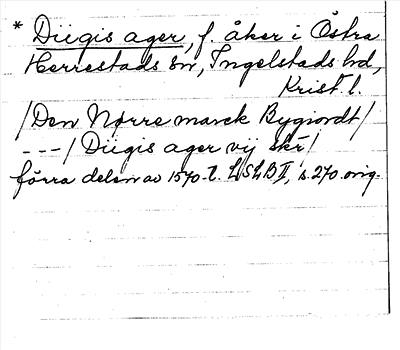 * Diigis ager, f. åker i Östra
Herrestads sn, Ingelstads hd,
Krist. l.
/Den Nørre marck Bygiordt/
---/ Diigis ager vij skr/
förra delen av 1570-t. LSLB II, s. 270. orig.